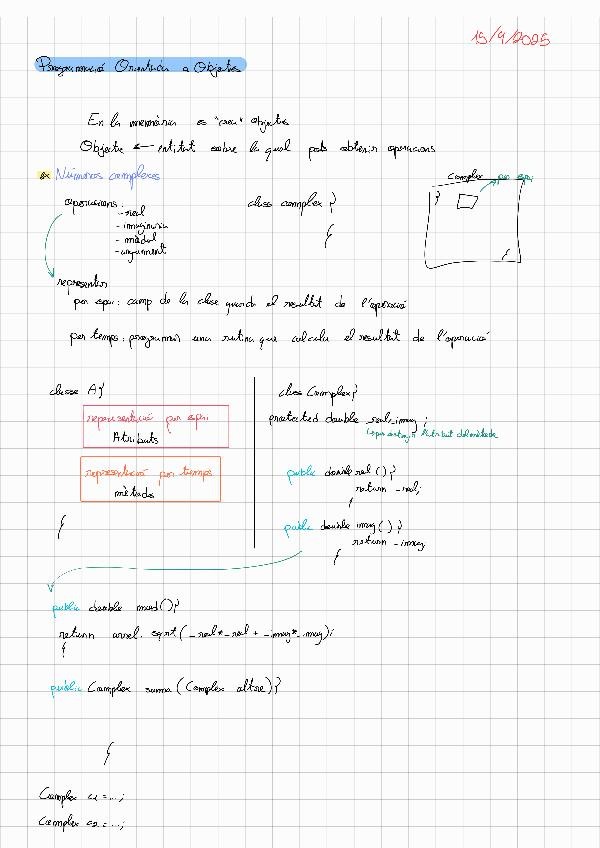 15/9/2025
Programació Orientada a Objectes
En la memòria es "crea" objectes
Objecte ← entitat sobre la qual pots obtenir operacions
ex Números complexes
operacions:
- real
- imaginaria
- mòdul
- argument
class complex {
}
Complex per espai
{
}
representar
per espai: camp de la classe guarda el resultat de l'operació
per temps: programar una rutina que calcula el resultat de l'operació
classe A{
representació per espai
Atributs
representació per temps
mètodes
}
class Complex{
protected double _real,_imag;
per distingir l'atribut del mètode
public double real(){
return _real;
}
public double imag(){
return _imag;
}
public double mod(){
return arrel.sqrt(_real*_real + _imag*_imag);
}
public Complex suma (Complex altre){
}
Complex c1 = ...;
Complex c2 = ...;